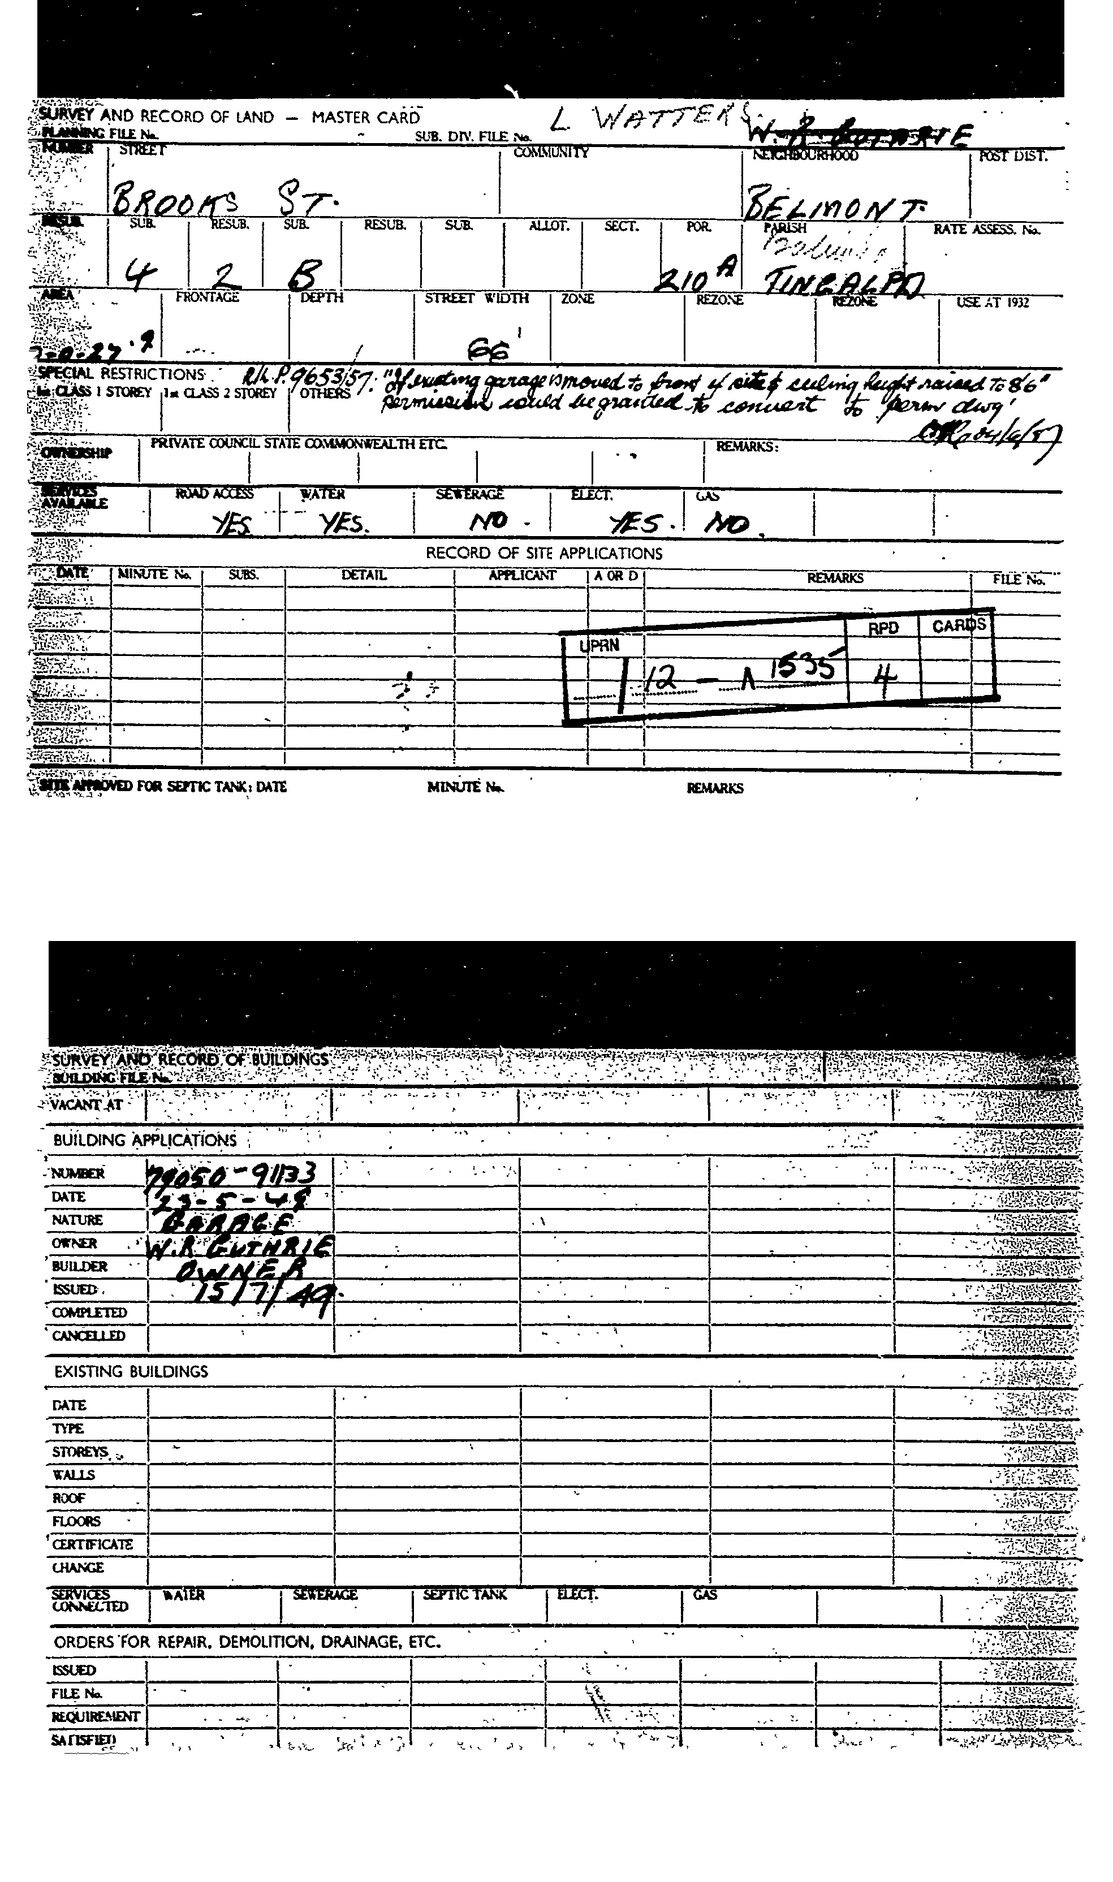 SURVEY AND RECORD OF LAND — MASTER CARD L WATTERS W. R. GUTHRIE
PLANNING FILE No. SUB. DIV. FILE No.
NUMBER STREET COMMUNITY NEIGHBOURHOOD POST DIST.
BROOKS ST. BELMONT.
RESUB. SUB. RESUB. SUB. RESUB. SUB. ALLOT. SECT. POR. PARISH RATE ASSESS. No.
4 2 B 210 A TINGALPA
AREA FRONTAGE DEPTH STREET WIDTH ZONE REZONE REZONE USE AT 1932
66'
SPECIAL RESTRICTIONS R.L.P. 9653/57: "If existing garage is moved to front of site & ceiling height raised to 8'6"
1st CLASS 1 STOREY 1st CLASS 2 STOREY OTHERS permission would be granted to convert to perm dwg'
OWNERSHIP PRIVATE COUNCIL STATE COMMONWEALTH ETC. REMARKS:
SERVICES AVAILABLE ROAD ACCESS WATER SEWERAGE ELECT. GAS
YES YES. NO. YES. NO.
RECORD OF SITE APPLICATIONS
DATE MINUTE No. SUBS. DETAIL APPLICANT A OR D REMARKS FILE No.
UPRN RPD CARDS
12 — 1535 4
SITE APPROVED FOR SEPTIC TANK; DATE MINUTE No. REMARKS
SURVEY AND RECORD OF BUILDINGS
BUILDING FILE No.
VACANT AT
BUILDING APPLICATIONS
NUMBER 79050-91133
DATE 23-5-49
NATURE GARAGE
OWNER W.R GUTHRIE
BUILDER OWNER
ISSUED 15/7/49.
COMPLETED
CANCELLED
EXISTING BUILDINGS
DATE
TYPE
STOREYS
WALLS
ROOF
FLOORS
CERTIFICATE
CHANGE
SERVICES CONNECTED WATER SEWERAGE SEPTIC TANK ELECT. GAS
ORDERS FOR REPAIR, DEMOLITION, DRAINAGE, ETC.
ISSUED
FILE No.
REQUIREMENT
SATISFIED